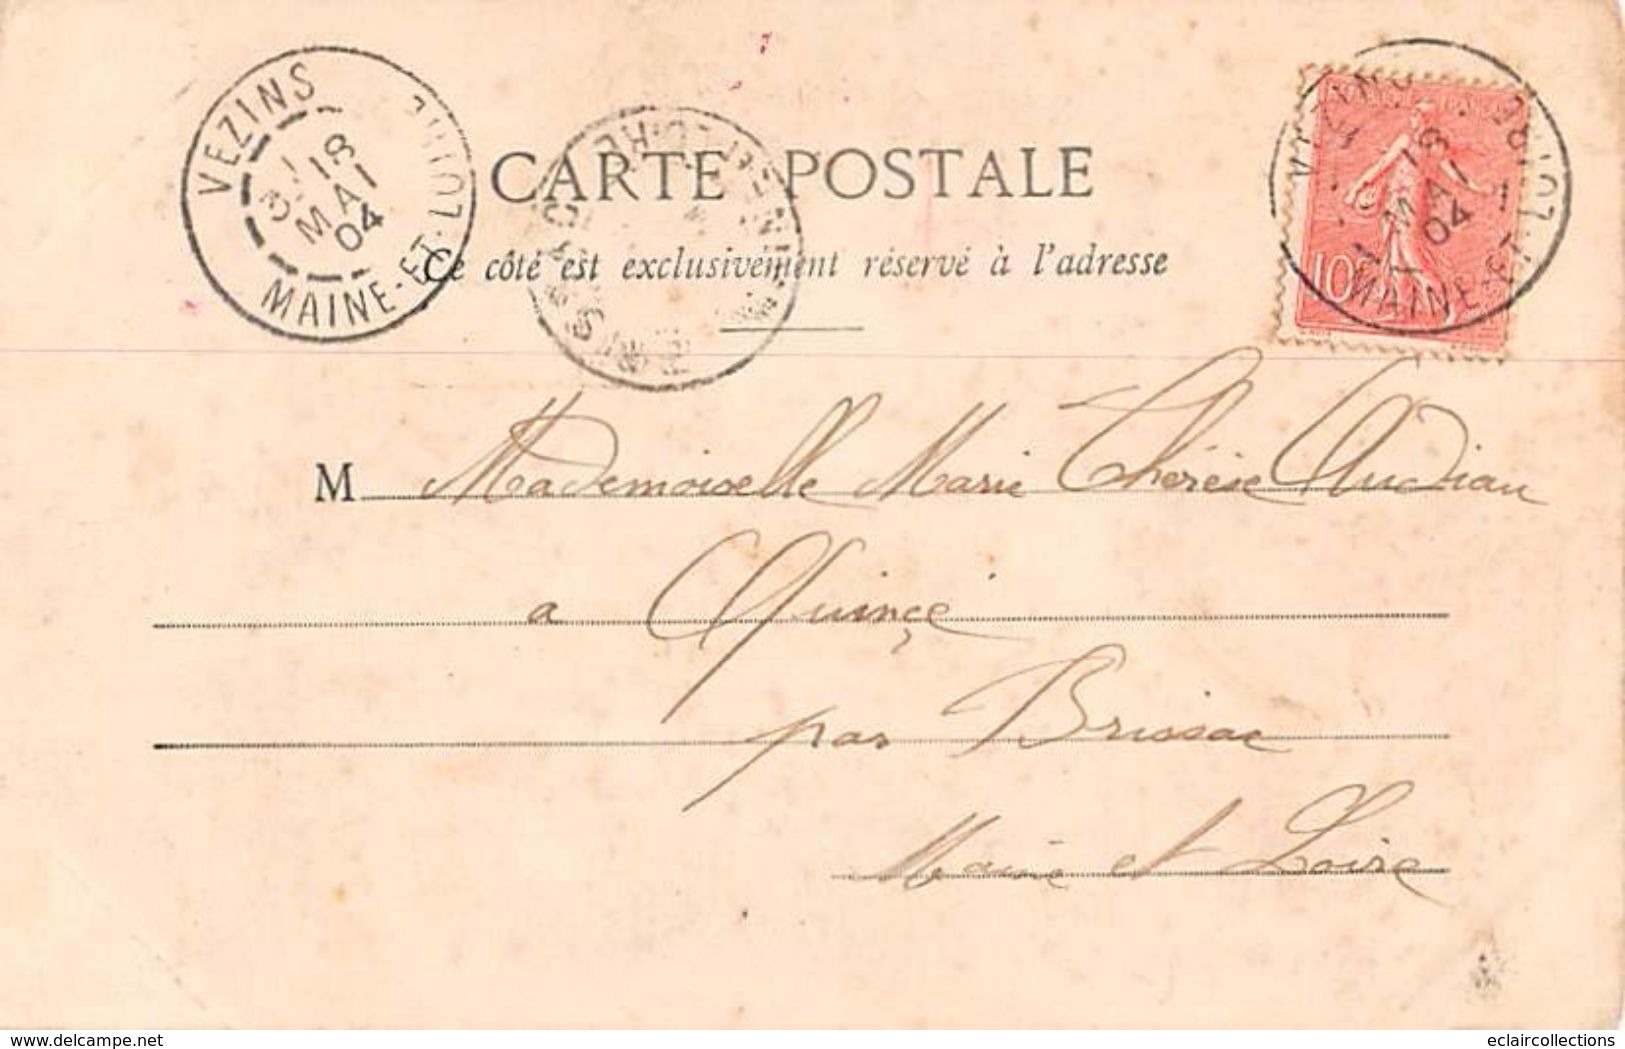 VEZINS
18
MAI
04
MAINE-ET-LOIRE
CARTE POSTALE
Ce côté est exclusivement réservé à l'adresse
10c
18
MAI
04
MAINE-ET-LOIRE
M Mademoiselle Marie Thérèse Audiau
a Quinçé
par Brissac
Maine et Loire
www.delcampe.net
eclaircollections